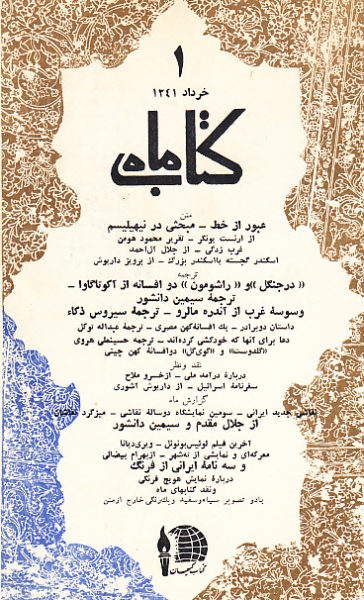 ۱
خرداد ۱۳٤۱
کتاب ماه
متن
عبور از خط ــ مبحثی در نیهیلیسم
از ارنست یونگر ــ تقریر محمود هومن
غرب زدگی ــ از جلال آل‌احمد
اسکندر گجسته یا اسکندر بزرگ ــ از پرویز داریوش
ترجمه
«درجنگل» و «راشومون» دو افسانه از آکوتاگاوا ــ
ترجمهٔ سیمین دانشور
وسوسهٔ غرب از آندره مالرو ــ ترجمهٔ سیروس ذکاء
داستان دوبرادر ــ یك افسانهٔ کهن مصری ــ ترجمه عبداله توکل
دعا برای آنها که خودکشی کرده‌اند ــ ترجمه حسینعلی هروی
«گلدوست» و «گوی‌گل» دوافسانهٔ کهن چینی
نقد و نظر
دربارهٔ درآمد ملی ــ ازخسرو ملاح
سفرنامهٔ اسرائیل ــ از داریوش آشوری
گزارش ماه
نقاشی جدید ایرانی ــ سومین نمایشگاه دوسالهٔ نقاشی ــ میزگرد نقاشان
از جلال مقدم و سیمین دانشور
آخرین فیلم لوئیس‌بونوئل ــ ویری‌دیانا
معرکه‌ای و نمایشی از نه‌شهر ــ ازبهرام بیضائی
و سه نامهٔ ایرانی از فرنگ
دربارهٔ نمایش هویج فرنگی
ونقد کتابهای ماه
با دو تصویر سیاه‌وسفید و یك‌رنگی خارج ازمتن
کتاب کیهان